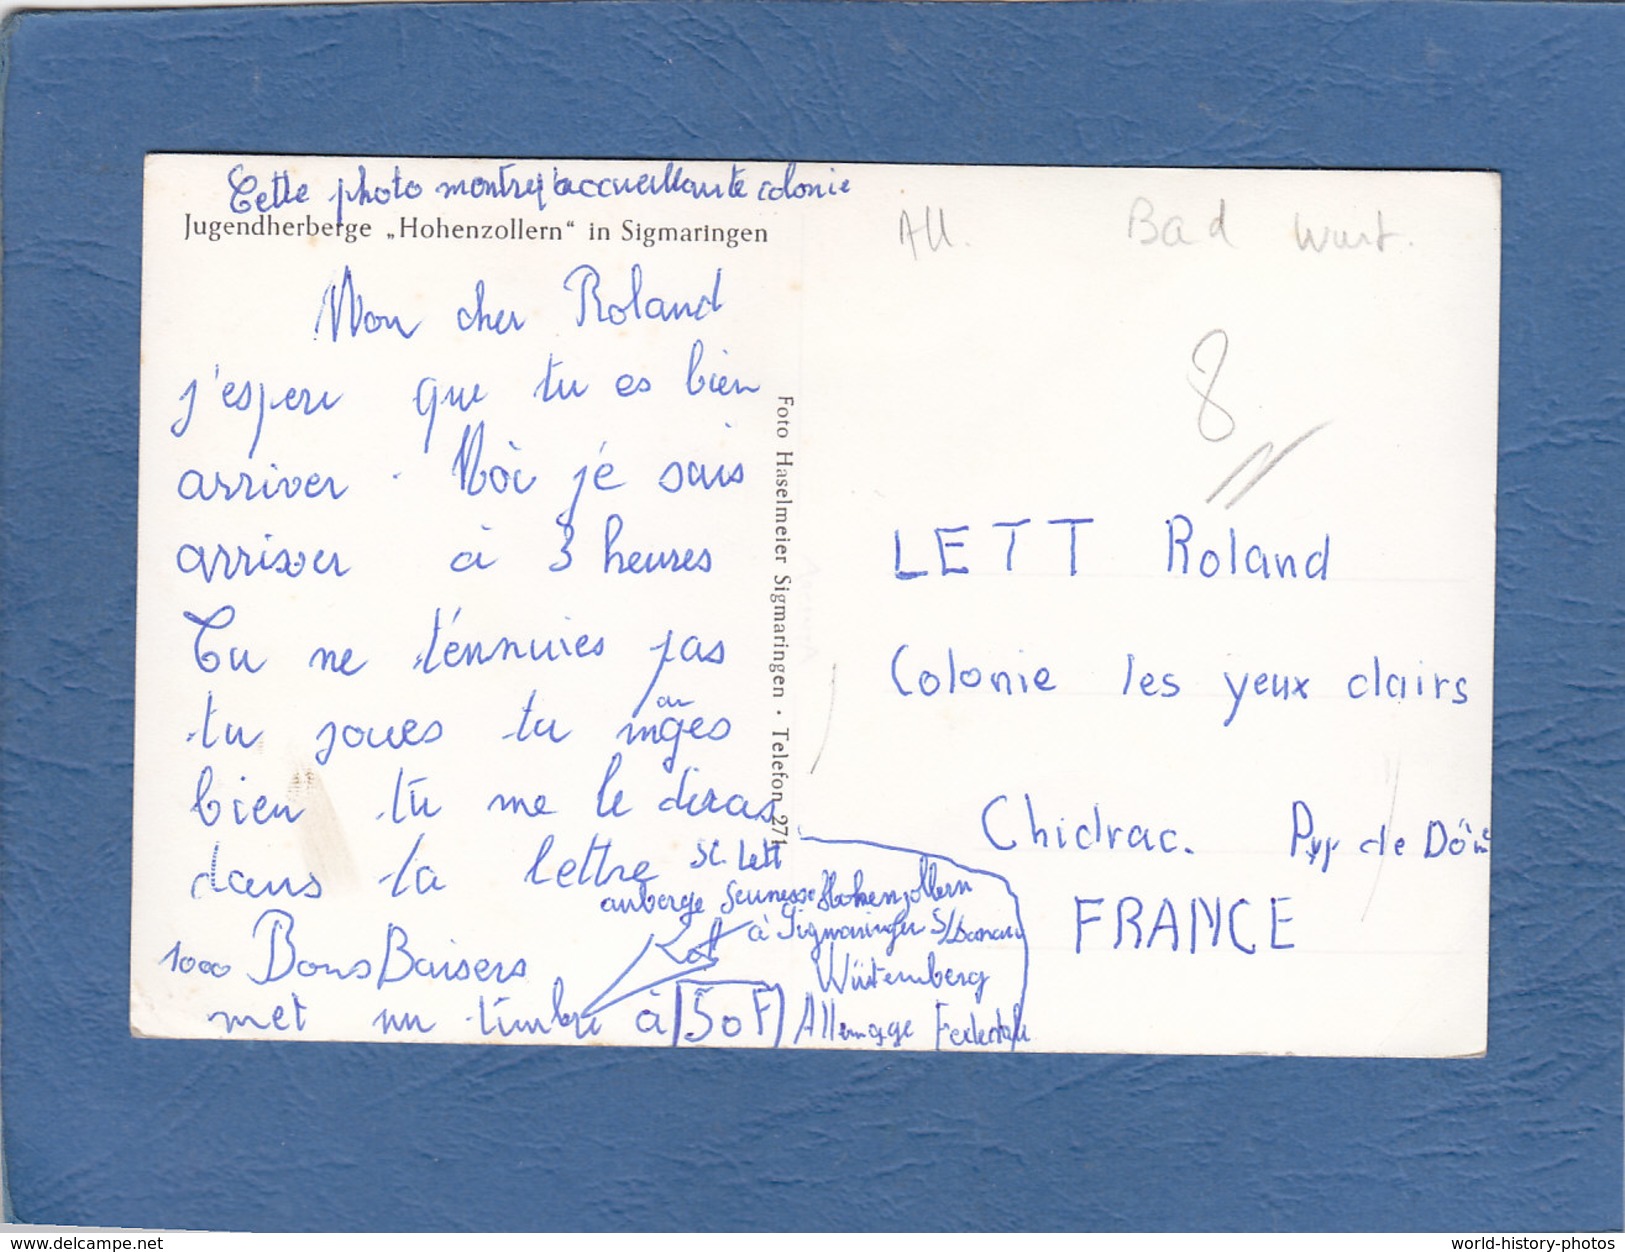 Cette photo montre l'accueillante colonie
Jugendherberge „Hohenzollern“ in Sigmaringen
Mon cher Roland
j'espere que tu es bien
arriver. Moi je sais
arriver à 3 heures
Tu ne t'ennuies pas
tu joues tu manges
bien tu me le diras
dans ta lettre
1000 Bons Baisers
met un timbre à 50F
Foto Haselmeier Sigmaringen · Telefon 271
Lett
auberge Jeunesse Hohenzollern
à Sigmaringen S/Danau
Würtemberg
Allemagne Federtale
All. Bad Wurt.
8
LETT Roland
Colonie les yeux clairs
Chidrac. Puy de Dôme
FRANCE
www.delcampe.net
world-history-photos